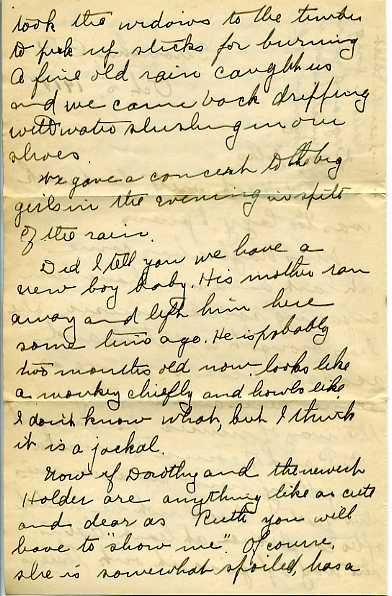 took the widows to the timber
to pick up sticks for burning
A fine old rain caught us
and we came back dripping
with water slushing in our
shoes.
We gave a concert to the big
girls in the evening in spite
of the rain.
Did I tell you we have a
new boy baby. His mother ran
away and left him here
some time ago. He is probably
two months old now - looks like
a monkey chiefly and howls like
I don't know what, but I think
it is a jackal.
Now if Dorothy and the newest
Holder are anything like as cute
and dear as Ruth you will
have to "show me". Of course,
she is somewhat spoiled, has a